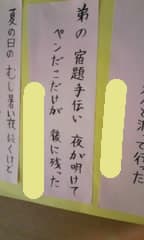 て行った
弟の宿題手伝い 夜が明けて
ペンだこだけが 後に残った
夏の日の むし暑い夜 続くけど